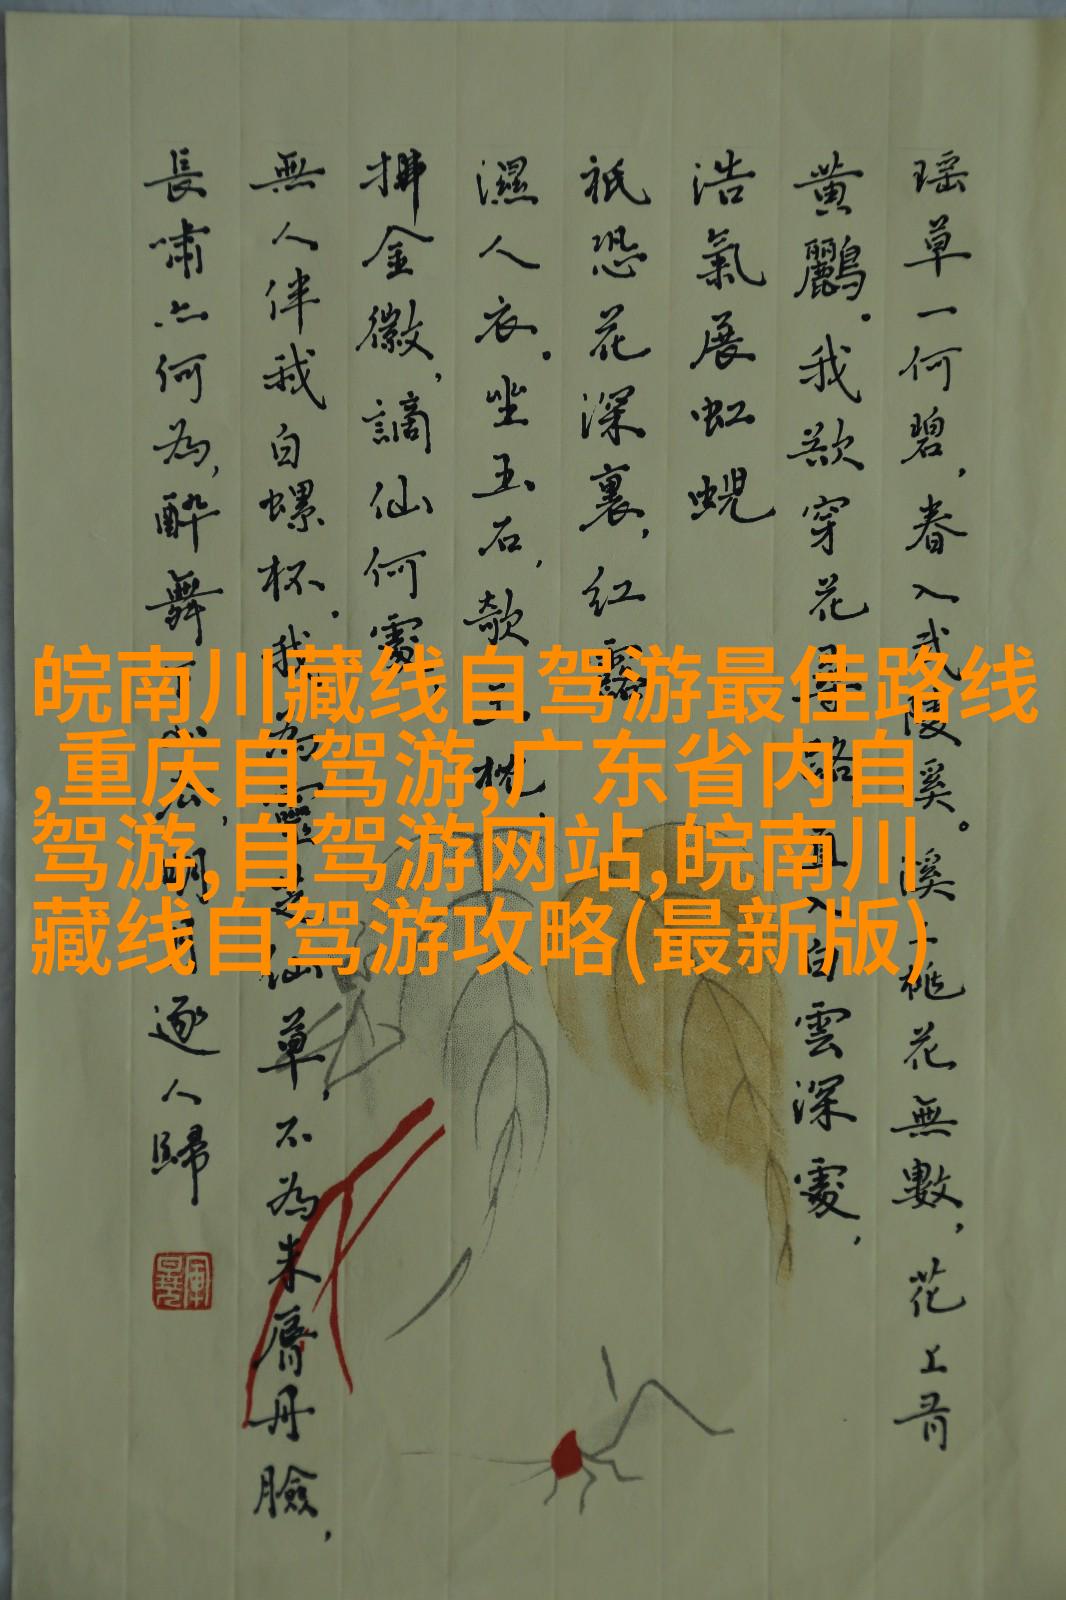 瑶草一何碧，春入武陵溪。溪上桃花無數，花上有
黄鸝。我欲穿花尋路，直入白雲深處，
浩氣展虹蜺
祇恐花深裏，紅露
濕人衣。坐玉石，欹玉枕，
拂金徽，謫仙何處
無人伴我白螺杯。我為靈芝仙草，不為朱唇丹臉，
長嘯亦何為，醉舞下山去，明月逐人歸
皖南川藏线自驾游最佳路线
,重庆自驾游,广东省内自
驾游,自驾游网站,皖南川
藏线自驾游攻略(最新版)